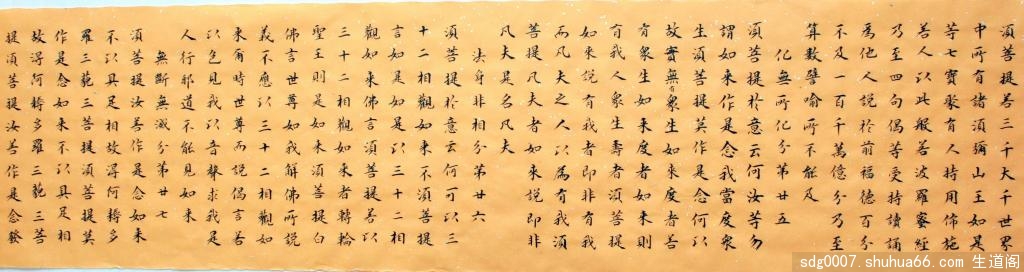 須菩提若三千大千世界
中所有諸須彌山王如是
等七寶聚有人持用佈施
若人以此般若波羅蜜經
乃至四句偈等受持讀誦
為他人說於前福德百分
不及一百千萬億分乃至
算數譬喻所不能及
化無所化分第廿五
須菩提於意云何汝等勿
謂如來作是念我當度衆
生須菩提莫作是念何以
故實無有衆生如來度者若
有衆生如來度者如來則
有我人衆生壽者須菩提
如來説有我者即非有我
而凡夫之人以為有我須
菩提凡夫者如來説即非
凡夫是名凡夫
法身非相分第廿六
須菩提於意云何可以三
十二相觀如來不須菩提
言如是如是以三十二相
觀如來佛言須菩提若以
三十二相觀如來者轉輪
聖王則是如來須菩提白
佛言世尊如我解佛所説
義不應以三十二相觀如
來爾時世尊而説偈言若
以色見我以音聲求我是
人行邪道不能見如來
無斷無滅分第廿七
須菩提汝若作是念如來
不以具足相故得阿耨多
羅三藐三菩提須菩提莫
作是念如來不以具足相
故得阿耨多羅三藐三菩
提須菩提汝若作是念發
sdg0007.shuhua66.com 生道阁